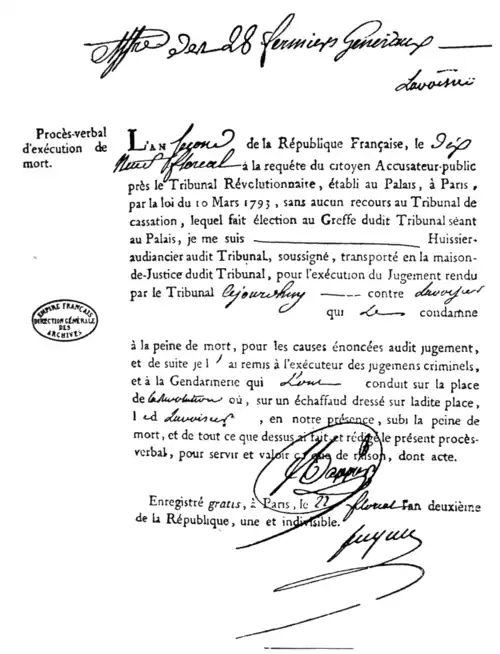 Affre des 28 fermiers Généraux
Lavoisier
Procès-verbal
d'exécution de
mort.
L'AN second de la République Française, le dix
neuf floreal à la requête du citoyen Accusateur-public
près le Tribunal Révolutionnaire, établi au Palais, à Paris,
par la loi du 10 Mars 1793, sans aucun recours au Tribunal de
cassation, lequel fait élection au Greffe dudit Tribunal séant
au Palais, je me suis Huissier-
audiancier audit Tribunal, soussigné, transporté en la maison-
de-Justice dudit Tribunal, pour l'exécution du Jugement rendu
par le Tribunal cejourdhuy contre Lavoisier
qui Le condamne
à la peine de mort, pour les causes énoncées audit jugement,
et de suite je l' ai remis à l'exécuteur des jugemens criminels,
et à la Gendarmerie qui L'ont conduit sur la place
de la Revolution où, sur un échaffaud dressé sur ladite place,
l ed Lavoisier, en notre présence, subi la peine de
mort, et de tout ce que dessus ai fait et rédigé le présent procès-
verbal, pour servir et valoir ce que de raison, dont acte.
Enregistré gratis, à Paris, le 22 floreal l'an deuxième
de la République, une et indivisible.
EMPIRE FRANÇAIS
DIRECTION GÉNÉRALE
DES
ARCHIVES